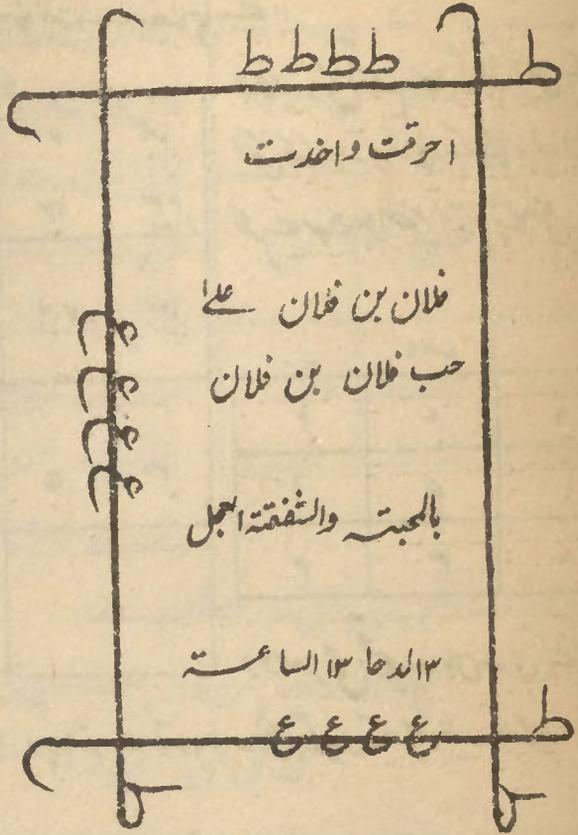 ط ط ط ط ط
احرقت واخدت
فلان بن فلان علے
حب فلان بن فلان
بالمحبتہ والشفقتہ العجل
۳ الدحا ۱۳ الساعتہ
ط
ع ع ع ع
ع ع ع ع